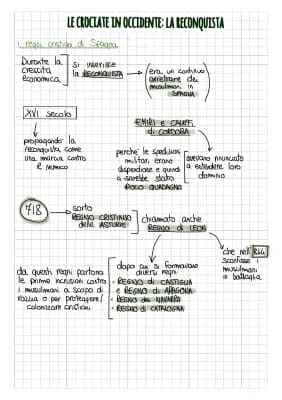 LE CROCIATE IN OCCIDENTE: LA RECONQUISTA
I regni cristiani di Spagna
Durante la
crescita
economica
si inserisce
la RECONQUISTA
era un continuo
arretrare dei
musulmani in
SPAGNA
XVI secolo
propaganda la
reconquista come
una marcia contro
il nemico
EMIRI e CALIFFI
di CORDOBA
perché le spedizioni
militari erano
dispendiose e quindi
ci sarebbe stato
POCO GUADAGNO
avevano rinunciato
a estendere loro
dominio
718
sorto
REGNO CRISTIANO
delle ASTURIE
chiamato anche
REGNO di LEON
che nell'
sconfisse i
musulmani
in battaglia
da questi regni partono
le prime incursioni contro
i musulmani a scopo di
razzia o per proteggere/
colonizzare cristiani
dopo cui si formarono
diversi regni
• REGNO di CASTIGLIA
• REGNO di ARAGONA
• REGNO di NAVARRA
• REGNO di CATALOGNA